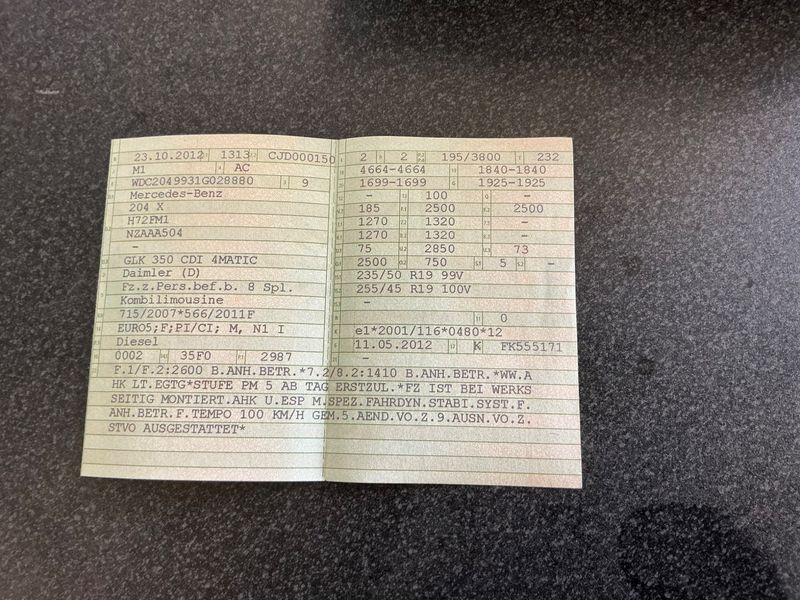 23.10.2012 1313 CJD000150
M1 AC
WDC2049931G028880 9
Mercedes-Benz
204 X
H72FM1
NZAAA504
-
GLK 350 CDI 4MATIC
Daimler (D)
Fz.z.Pers.bef.b. 8 Spl.
Kombilimousine
715/2007*566/2011F
EURO5;F;PI/CI; M, N1 I
Diesel
0002 35F0 2987
2 2 195/3800 232
4664-4664 1840-1840
1699-1699 1925-1925
- 100 -
185 2500 2500
1270 1320 -
1270 1320 -
75 2850 73
2500 750 5 -
235/50 R19 99V
255/45 R19 100V
-
0
e1*2001/116*0480*12
11.05.2012 K FK555171
-
F.1/F.2:2600 B.ANH.BETR.*7.2/8.2:1410 B.ANH.BETR.*WW.A
HK LT.EGTG*STUFE PM 5 AB TAG ERSTZUL.*FZ IST BEI WERKS
SEITIG MONTIERT.AHK U.ESP M.SPEZ.FAHRDYN.STABI.SYST.F.
ANH.BETR.F.TEMPO 100 KM/H GEM.5.AEND.VO.Z.9.AUSN.VO.Z.
STVO AUSGESTATTET*